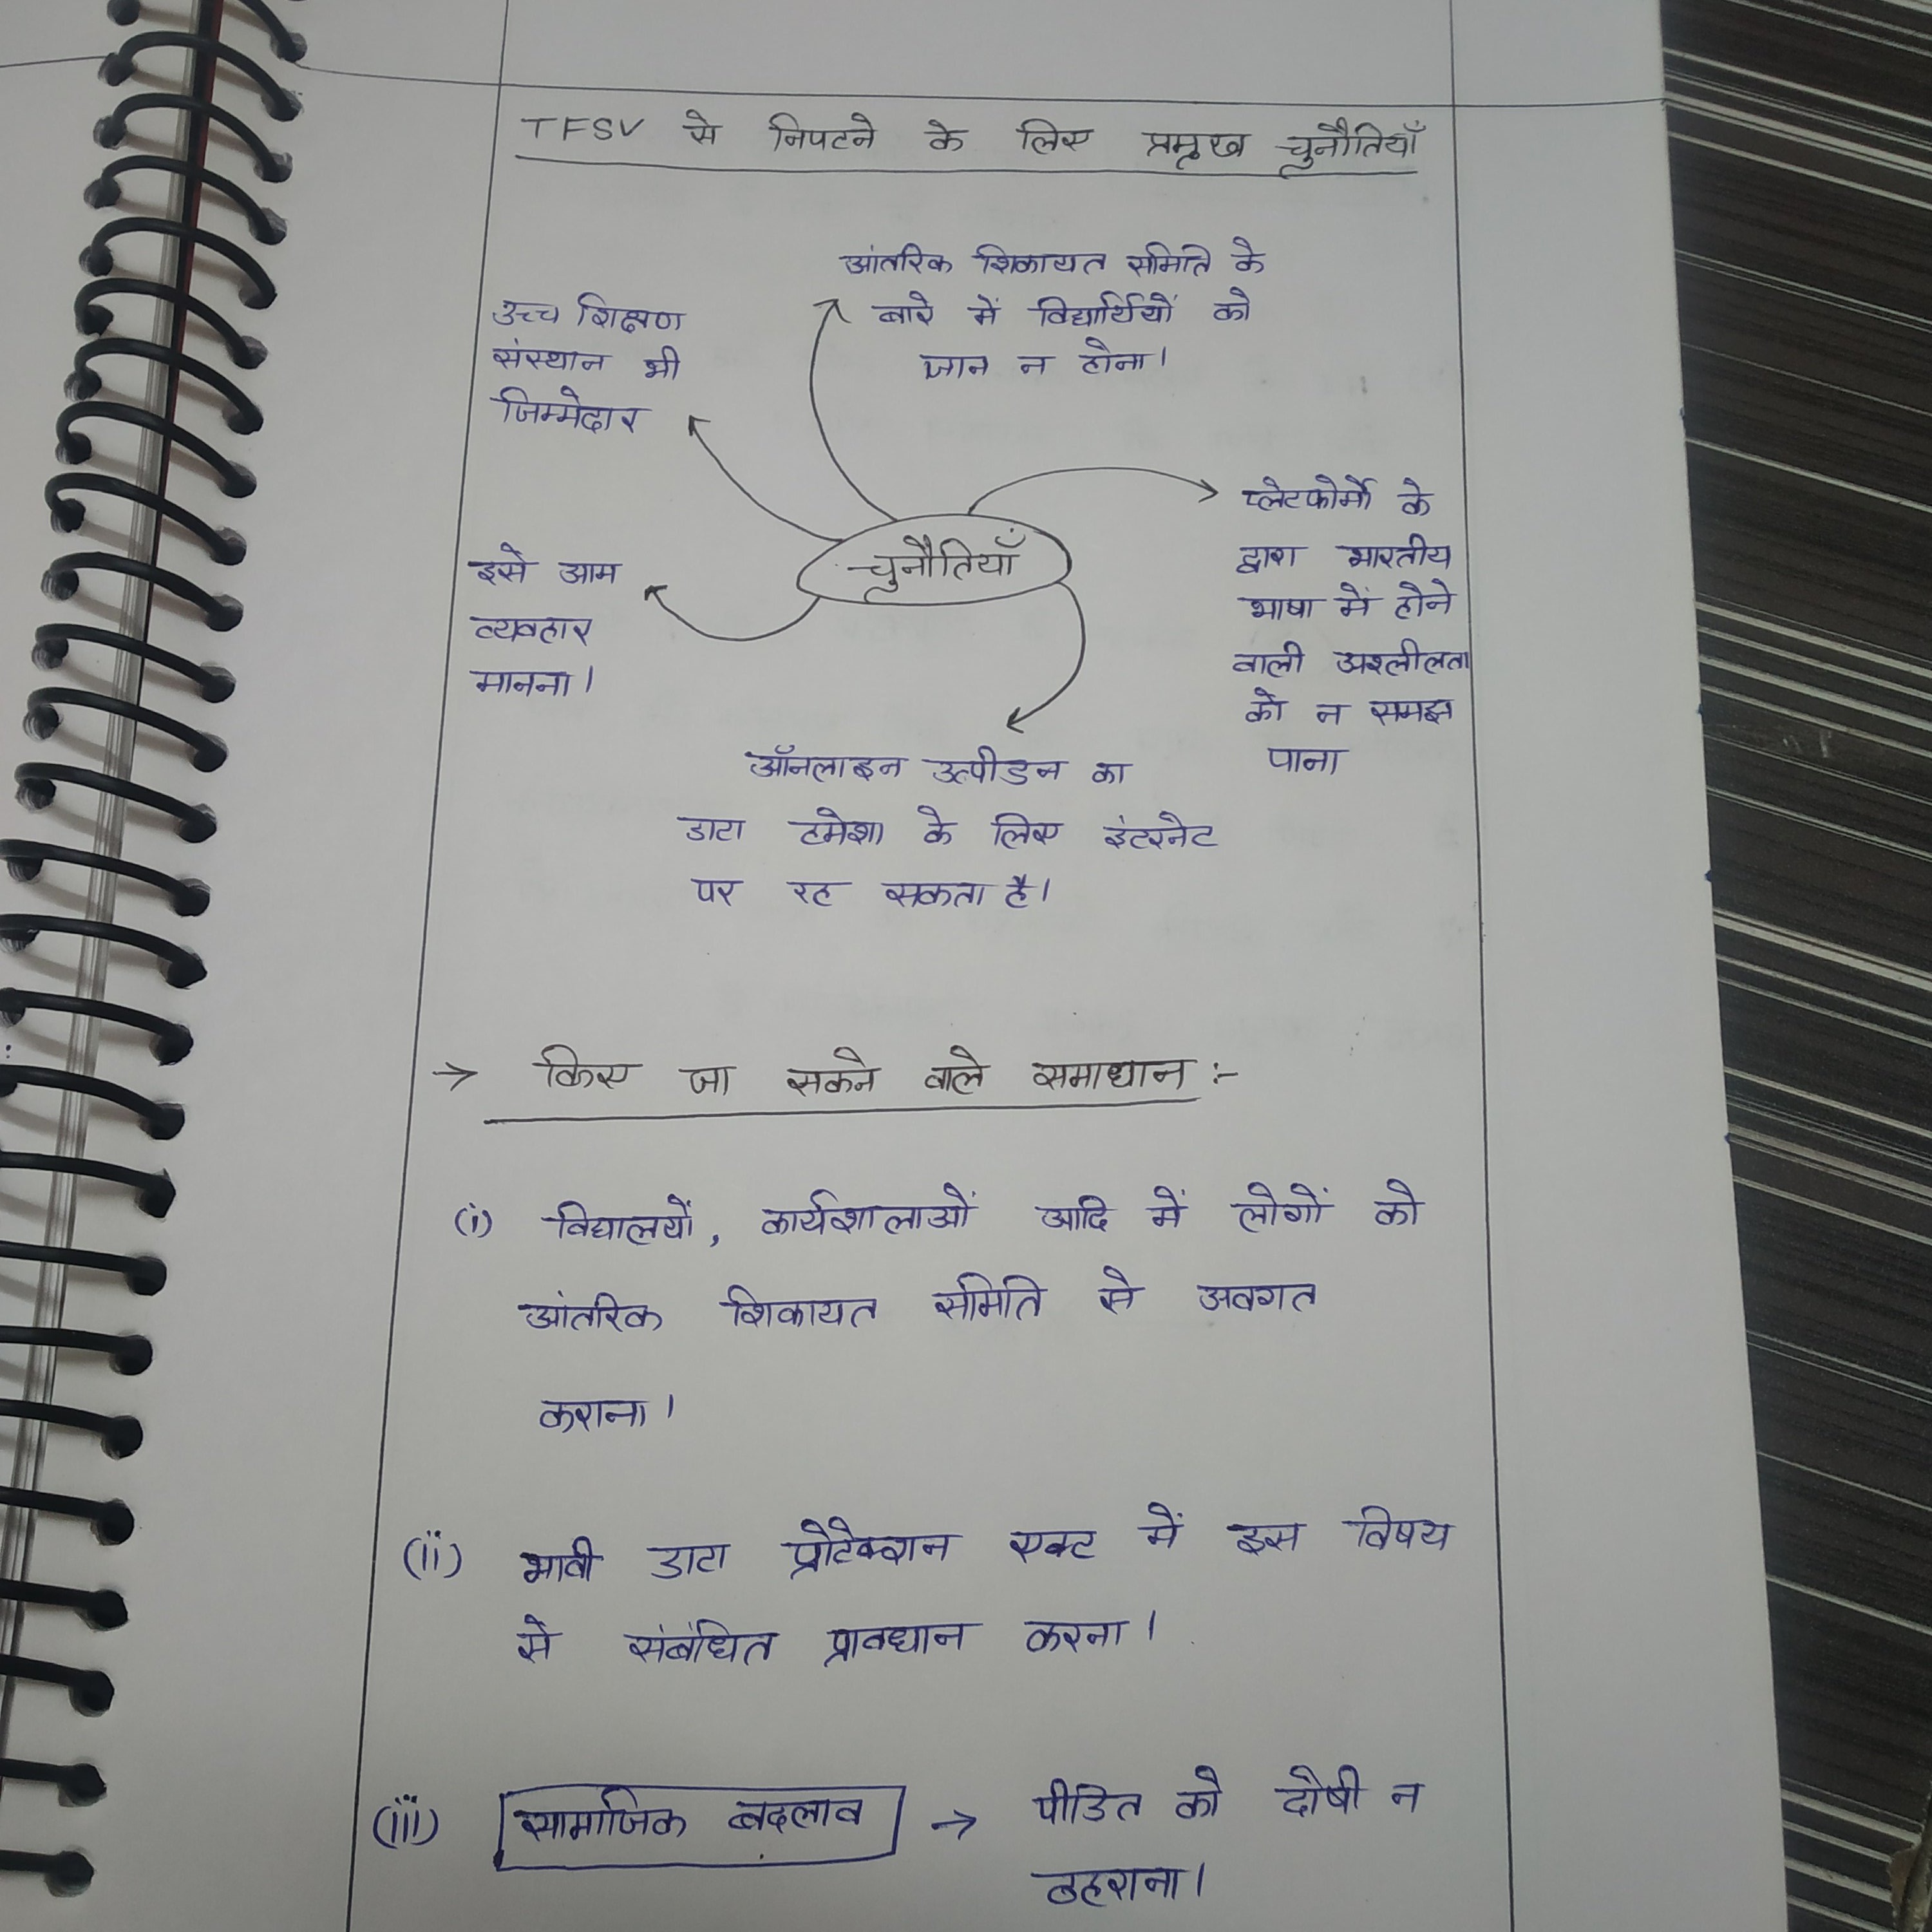 TFSV से निपटने के लिए प्रमुख चुनौतियाँ
आंतरिक शिकायत समिति के
बारे में विद्यार्थियों को
ज्ञान न होना।
उच्च शिक्षण
संस्थान भी
जिम्मेदार
चुनौतियाँ
प्लेटफोर्मो के
द्वारा भारतीय
भाषा में होने
वाली अश्लीलता
को न समझ
पाना
इसे आम
व्यवहार
मानना।
ऑनलाइन उत्पीडन का
डाटा हमेशा के लिए इंटरनेट
पर रह सकता है।
→ किए जा सकने वाले समाधान :-
(i) विद्यालयों, कार्यशालाओं आदि में लोगों को
आंतरिक शिकायत समिति से अवगत
कराना।
(ii) भावी डाटा प्रोटेक्शन एक्ट में इस विषय
से संबंधित प्रावधान करना।
(iii) सामाजिक बदलाव → पीडित को दोषी न
ठहराना।